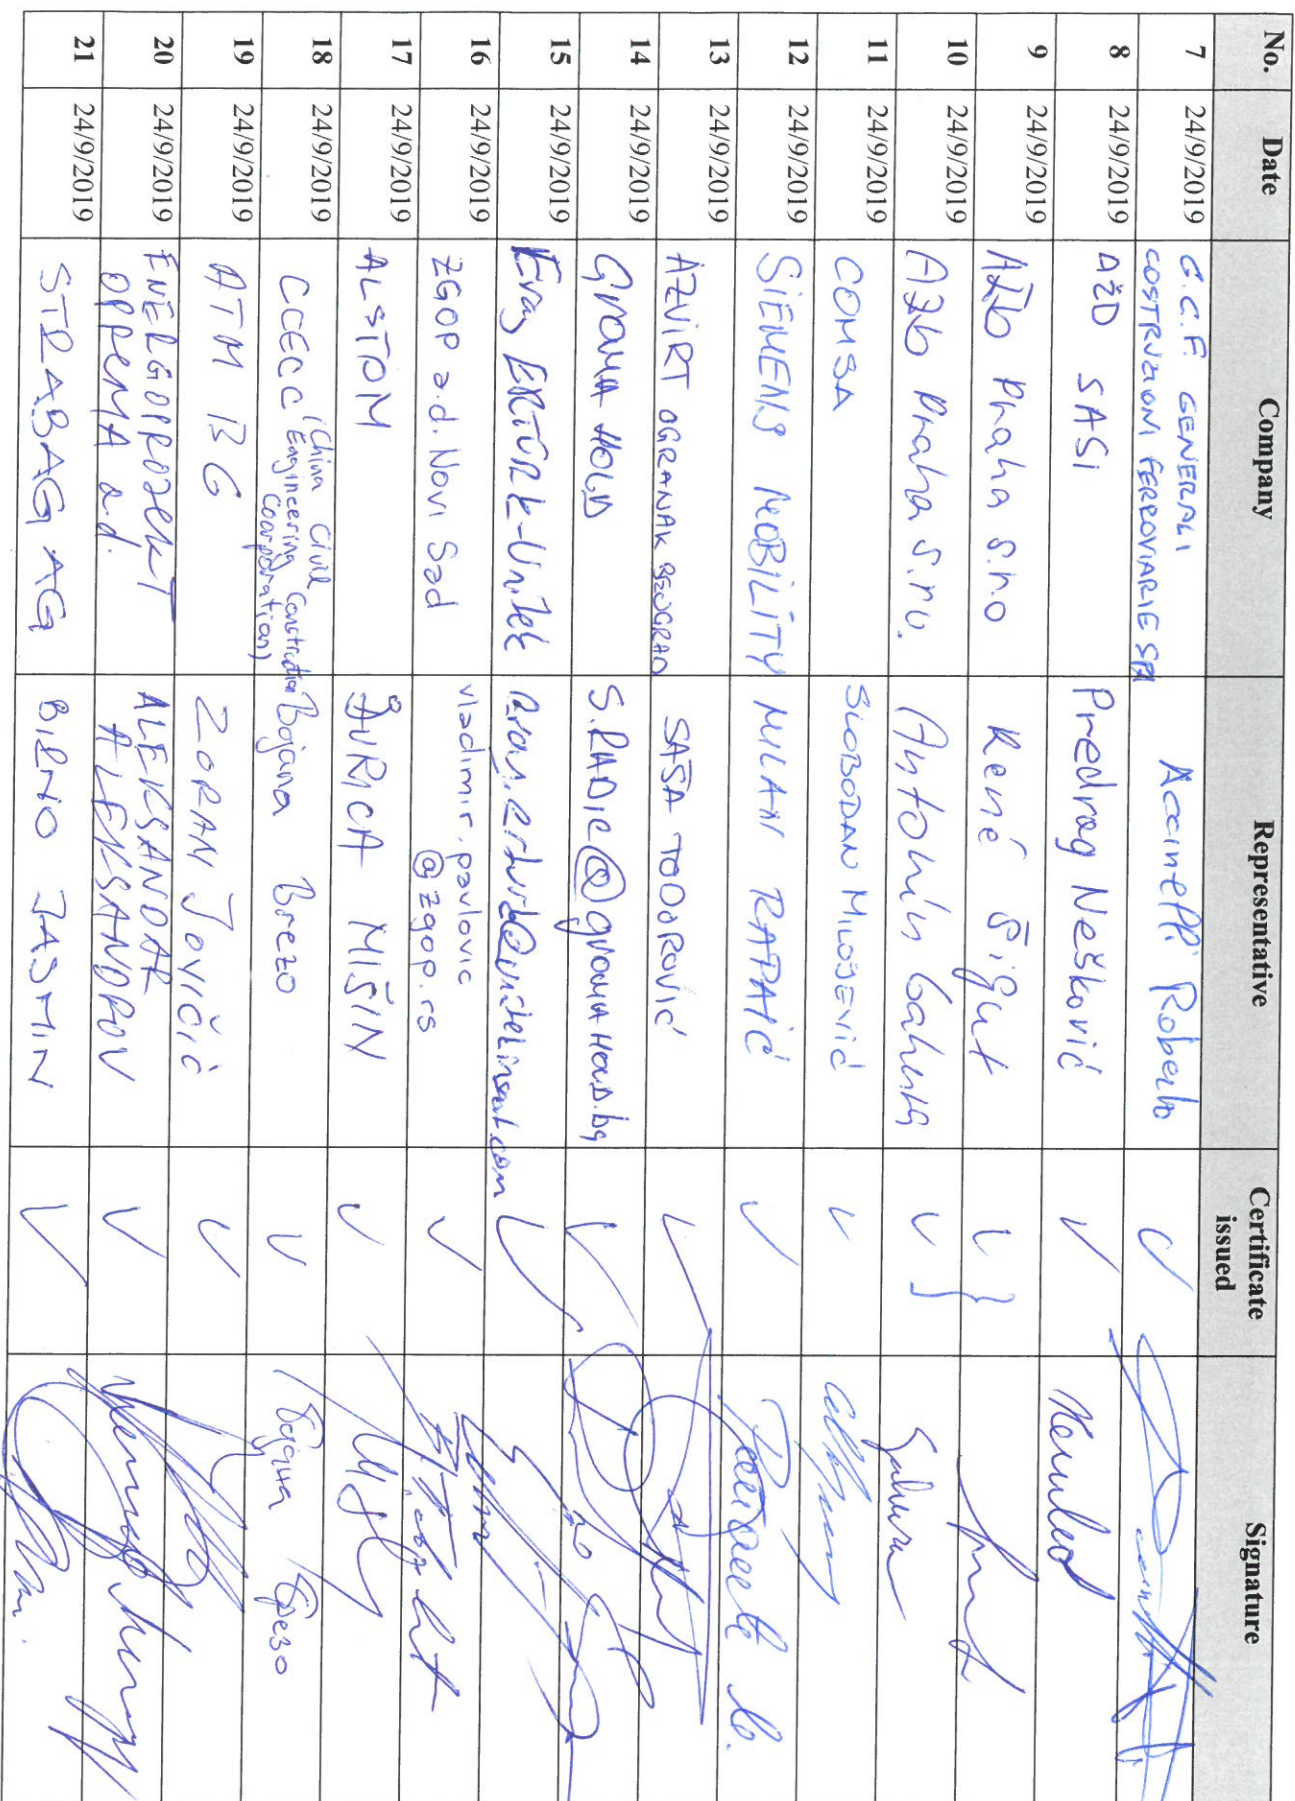 No. Date Company Representative Certificate issued Signature
7 24/9/2019 G.C.F. GENERALI COSTRUZIONI FERROVIARIE SPA Accinelli Roberto
8 24/9/2019 AŽD SASI Predrag Nešković
9 24/9/2019 AŽD Praha s.r.o René Šigut
10 24/9/2019 AŽD Praha s.r.o. Antonín
11 24/9/2019 COMSA SLOBODAN MILOŠEVIĆ
12 24/9/2019 SIEMENS MOBILITY MILAN RAPAIĆ
13 24/9/2019 AZVIRT OGRANAK BEOGRAD SAŠA TODOROVIĆ
14 24/9/2019 GROMA HOLD S.RADIC@GROMAHOLD.bg
15 24/9/2019 Eray ERTÜRK-Unitek
16 24/9/2019 ŽGOP a.d. Novi Sad vladimir.pavlovic @zgop.rs
17 24/9/2019 ALSTOM ĐURICA MIŠIN
18 24/9/2019 CCECC (China Civil Engineering Construction Coorporation) Bojana Brezo Бојана Брезо
19 24/9/2019 ATM BG ZORAN JOVIČIĆ
20 24/9/2019 ENERGOPROJEKT OPREMA a.d. ALEKSANDAR ALEKSANDROV
21 24/9/2019 STRABAG AG JASMIN